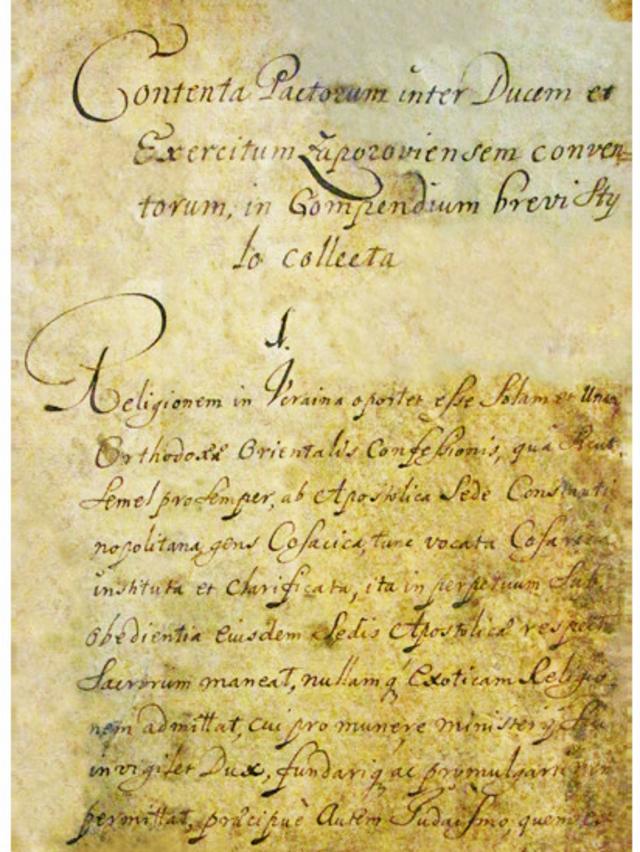 Contenta Pactorum inter Ducem et
Exercitum Zaporoviensem conven=
torum, in Compendium brevi Sty
lo collecta
1.
Religionem in Ucraina oportet esse Solam et Unam
Orthodoxæ Orientalis Confessionis, qua
Semel pro Semper, ab Apostolica Sede Constanti
nopolitana, gens Cosacica, tunc vocata
instituta et clarificata, ita in perpetuum Sub
Obedientia Eiusdem Sedis Apostolicæ respectu
Sacrorum maneat, nullamq Exoticam Religio
nem admittat, cui pro munere ministerij
invigilet Dux, fundariq ac promulgari non
permittat, præcipuè Autem Judaismo, quem